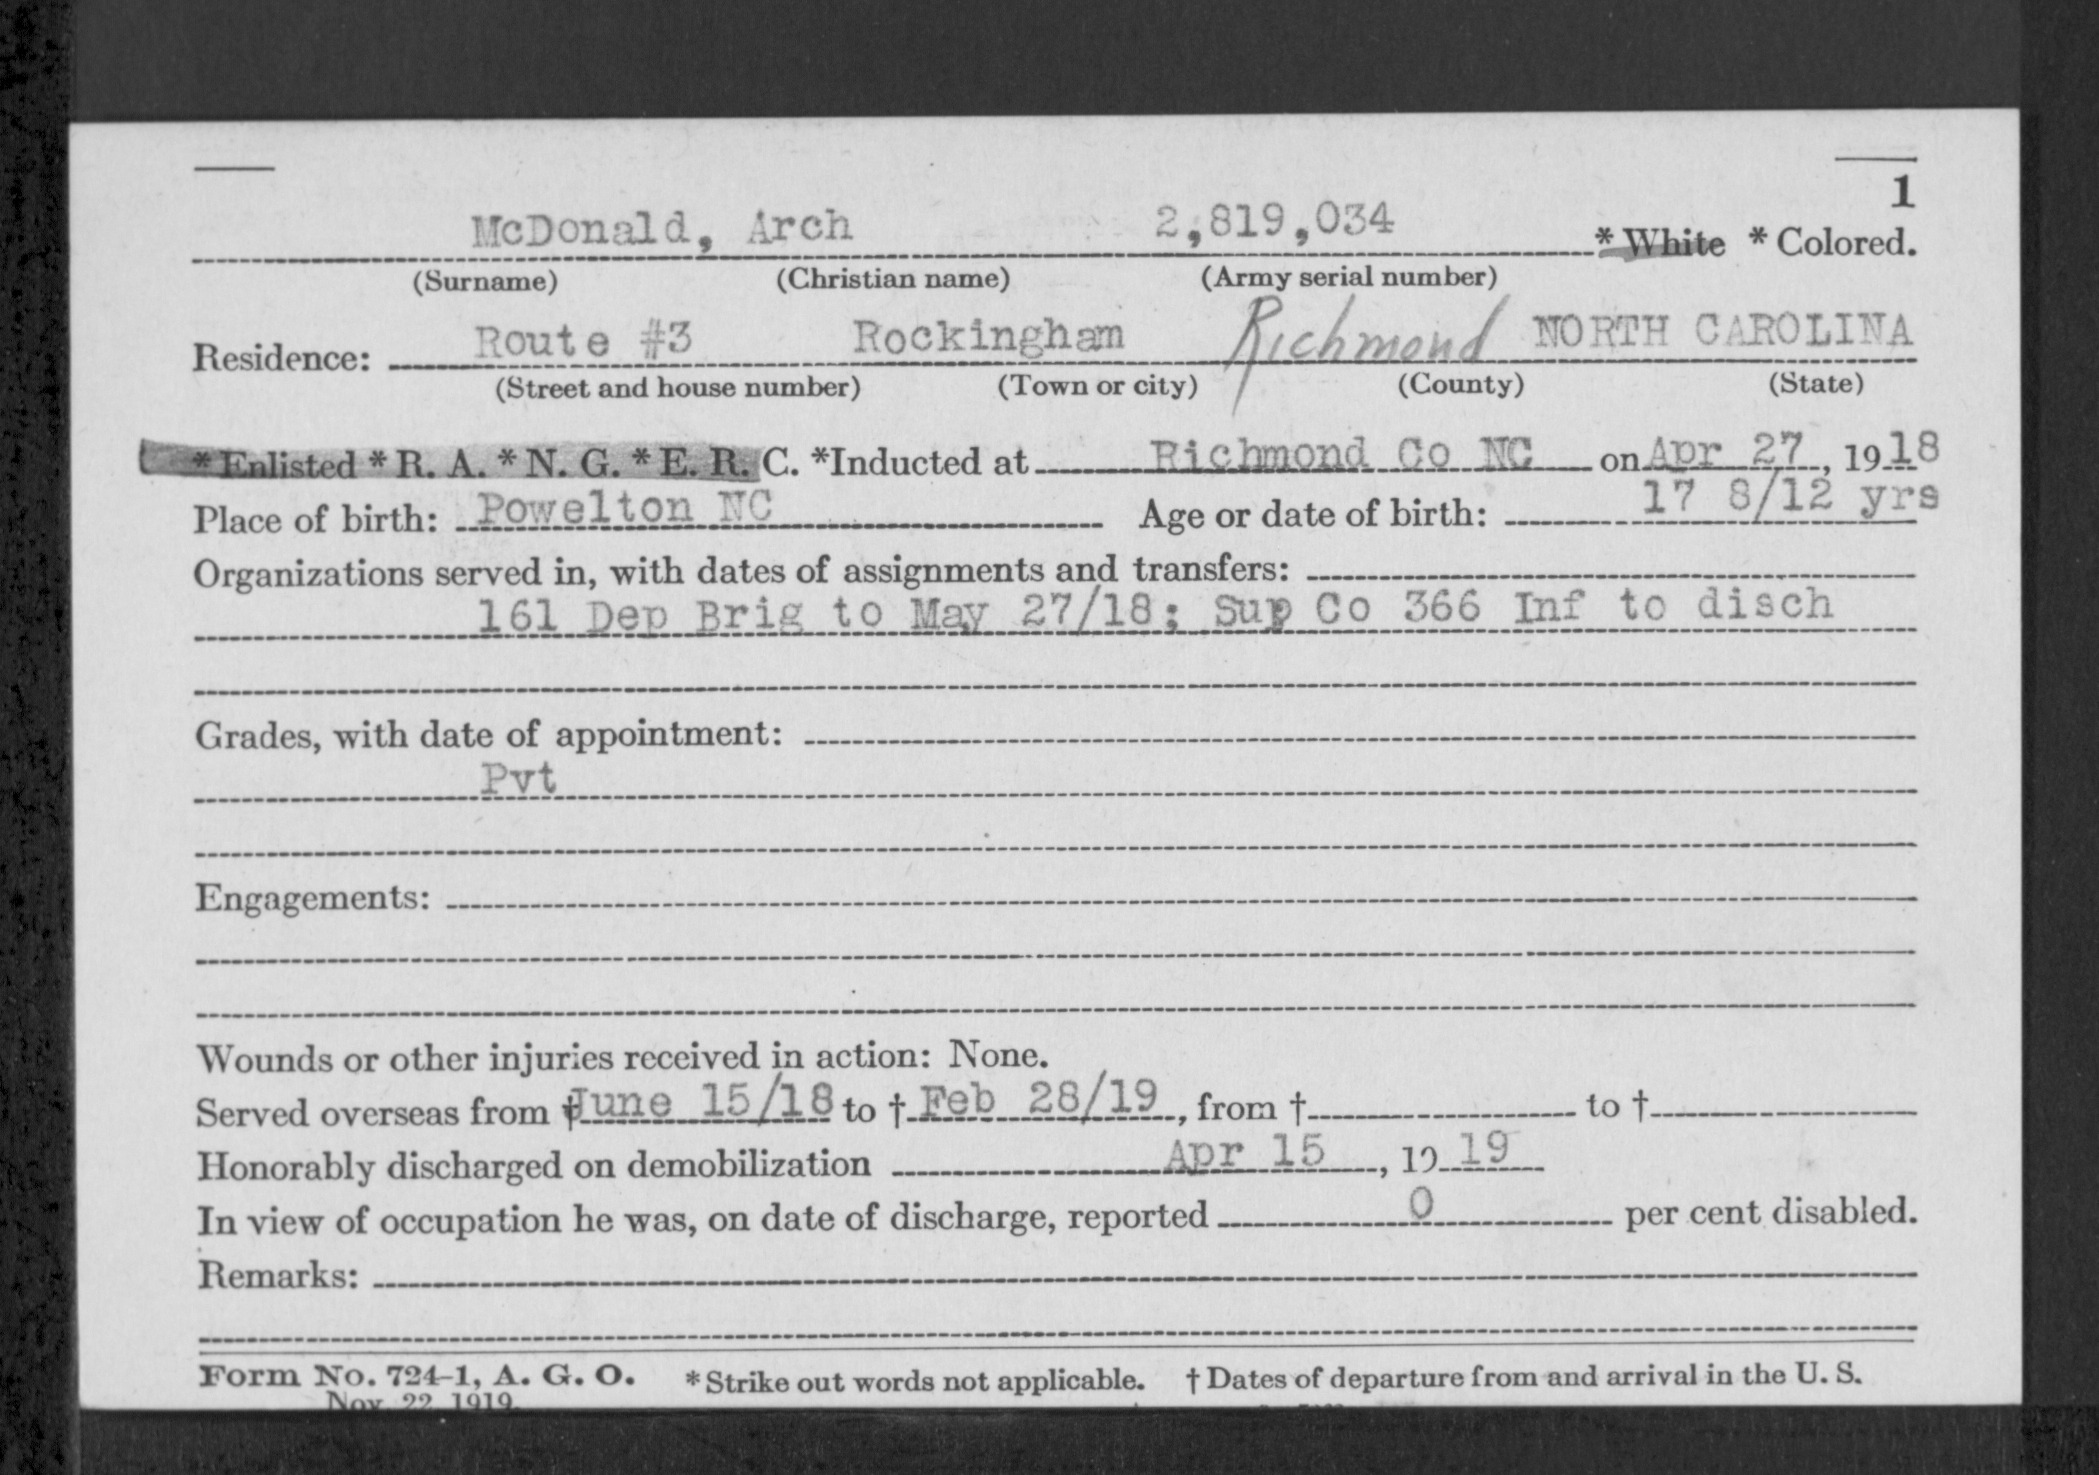 1
McDonald, Arch 2,819,034 * White * Colored.
(Surname) (Christian name) (Army serial number)
Residence: Route #3 Rockingham Richmond NORTH CAROLINA
(Street and house number) (Town or city) (County) (State)
* Enlisted * R. A. * N. G. * E. R. C. *Inducted at Richmond Co NC on Apr 27, 1918
Place of birth: Powelton NC Age or date of birth: 17 8/12 yrs
Organizations served in, with dates of assignments and transfers:
161 Dep Brig to May 27/18; Sup Co 366 Inf to disch
Grades, with date of appointment:
Pvt
Engagements:
Wounds or other injuries received in action: None.
Served overseas from † June 15/18 to † Feb 28/19, from † to †
Honorably discharged on demobilization Apr 15, 1919
In view of occupation he was, on date of discharge, reported 0 per cent disabled.
Remarks:
Form No. 724-1, A. G. O. * Strike out words not applicable. † Dates of departure from and arrival in the U. S.
Nov. 22, 1919.